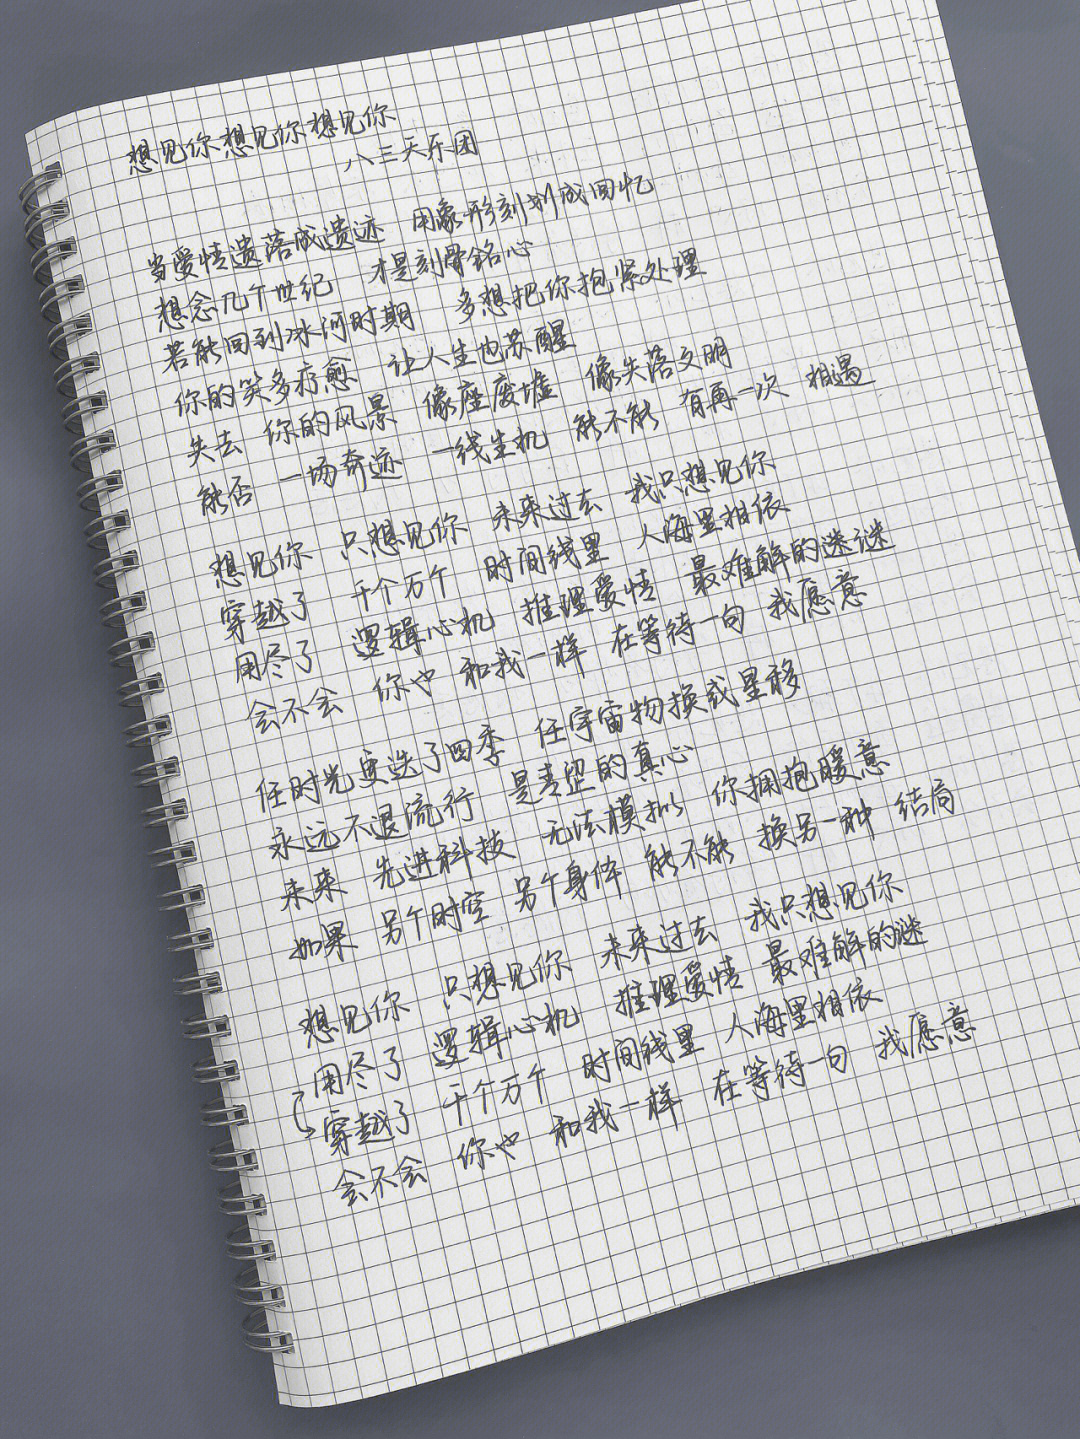 想见你想见你想见你
八三夭乐团
当爱情遗落成遗迹 用象形刻划成回忆
想念几个世纪 才是刻骨铭心
若能回到冰河时期 多想把你抱紧处理
你的笑多疗愈 让人生也苏醒
失去 你的风景 像座废墟 像失落文明
能否 一场奇迹 一线生机 能不能 有再一次 相遇
想见你 只想见你 未来过去 我只想见你
穿越了 千个万个 时间线里 人海里相依
用尽了 逻辑心机 推理爱情 最难解的迷谜
会不会 你也 和我一样 在等待一句 我愿意
任时光更迭了四季 任宇宙物换或星移
永远不退流行 是青涩的真心
未来 先进科技 无法模拟 你拥抱暖意
如果 另个时空 另个身体 能不能 换另一种 结局
想见你 只想见你 未来过去 我只想见你
用尽了 逻辑心机 推理爱情 最难解的谜
穿越了 千个万个 时间线里 人海里相依
会不会 你也 和我一样 在等待一句 我愿意